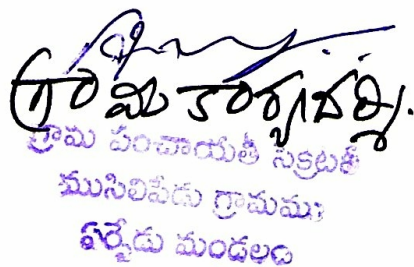 గ్రామ కార్యదర్శి.
గ్రామ పంచాయతీ సెక్రటరీ
ముసిలిపేడు గ్రామము
ఏర్పేడు మండలం